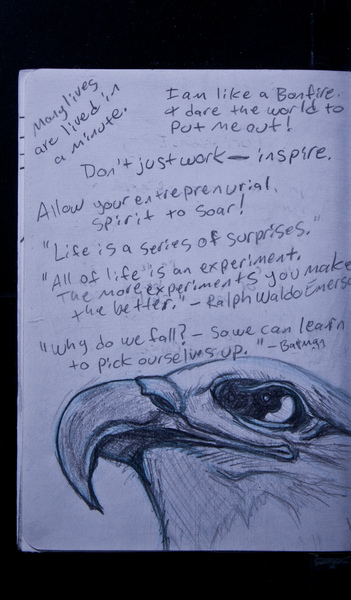 Many lives
are lived in
a minute.
I am like a Bonfire.
& dare the world to
put me out!
Don't just work — inspire.
Allow your entreprenurial
spirit to soar!
"Life is a series of surprises."
"All of life is an experiment.
The more experiments you make
the better." - Ralph Waldo Emerso
"Why do we fall? - So we can learn
to pick ourselves up." - Batman